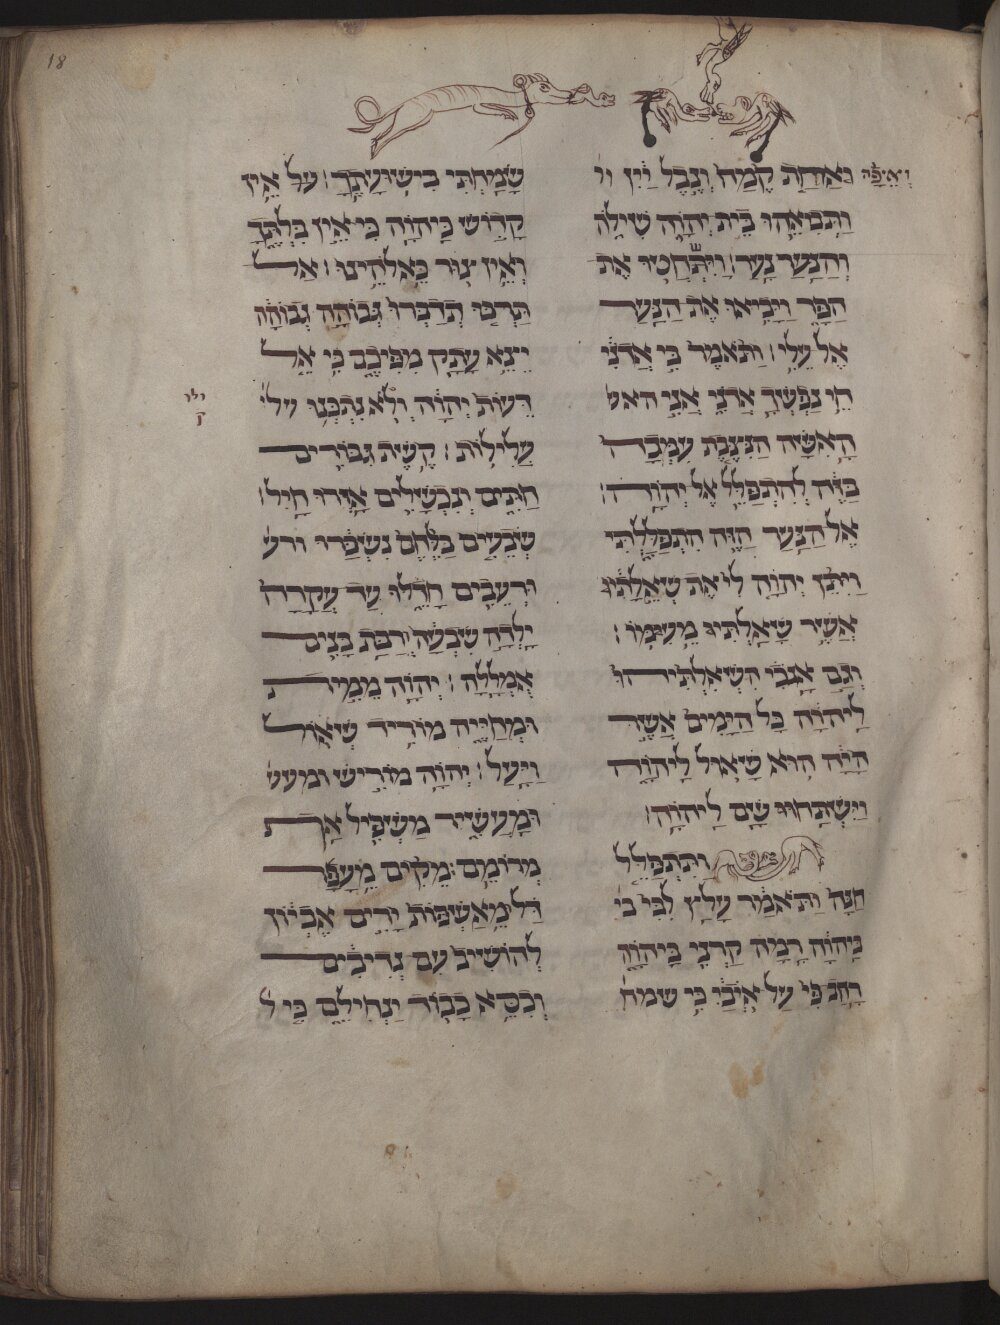 18
וְאֵיפָה
כאַחַת קֶמַח וְנֵבֶל יַיִן וי
וַתְּבִאֵהוּ בֵּית יְהוָה שִׁילֹה
וְהַנַּעַר נָעַר׃ וַיִּשְׁחֲטוּ אֶת
הַפָּר וַיָּבִיאוּ אֶת הַנַּעַר
אֶל עֵלִי׃ וַתֹּאמֶר בִּי אֲדֹנִי
חֵי נַפְשְׁךָ אֲדֹנִי אֲנִי האש
הָאִשָּׁה הַנִּצֶּבֶת עִמְּכָה
בָּזֶה לְהִתְפַּלֵּל אֶל יְהוָה׃
אֶל הַנַּעַר הַזֶּה הִתְפַּלָּלְתִּי
וַיִּתֵּן יְהוָה לִי אֶת שְׁאֵלָתִי
אֲשֶׁר שָׁאַלְתִּי מֵעִמּוֹ׃
וְגַם אָנֹכִי הִשְׁאִלְתִּיהוּ
לַיהוָה כָּל הַיָּמִים אֲשֶׁר
הָיָה הוּא שָׁאוּל לַיהוָה
וַיִּשְׁתַּחוּ שָׁם לַיהוָה׃
וַתִּתְפַּלֵּל
חַנָּה וַתֹּאמַר עָלַץ לִבִּי בי
בַּיהוָה רָמָה קַרְנִי בַּיהוָה
רָחַב פִּי עַל אֹיְבַי כִּי שמח
שָׂמַחְתִּי בִּישׁוּעָתֶךָ׃ על אֵין
קָדוֹשׁ כַּיהוָה כִּי אֵין בִּלְתֶּךָ
וְאֵין צוּר כֵּאלֹהֵינוּ׃ אַל
תַּרְבּוּ תְדַבְּרוּ גְּבוֹהָה גְבוֹהָה
יֵצֵא עָתָק מִפִּיכֶם כִּי אֵל
דֵּעוֹת יְהוָה וְלֹא נִתְכְּנוּ עלי
ולו
ק
עֲלִילוֹת׃ קֶשֶׁת גִּבּוֹרִים
חַתִּים וְנִכְשָׁלִים אָזְרוּ חָיִל׃
שְׂבֵעִים בַּלֶּחֶם נִשְׂכָּרוּ ורע
וּרְעֵבִים חָדֵלּוּ עַד עֲקָרָה
יָלְדָה שִׁבְעָה וְרַבַּת בָּנִים
אֻמְלָלָה׃ יְהוָה מֵמִית
וּמְחַיֶּה מוֹרִיד שְׁאוֹל
וַיָּעַל׃ יְהוָה מוֹרִישׁ ומעש
וּמַעֲשִׁיר מַשְׁפִּיל אַף
מְרוֹמֵם׃ מֵקִים מֵעָפָר
דָּל מֵאַשְׁפּוֹת יָרִים אֶבְיוֹן
לְהוֹשִׁיב עִם נְדִיבִים
וְכִסֵּא כָבוֹד יַנְחִלֵם כִּי ל